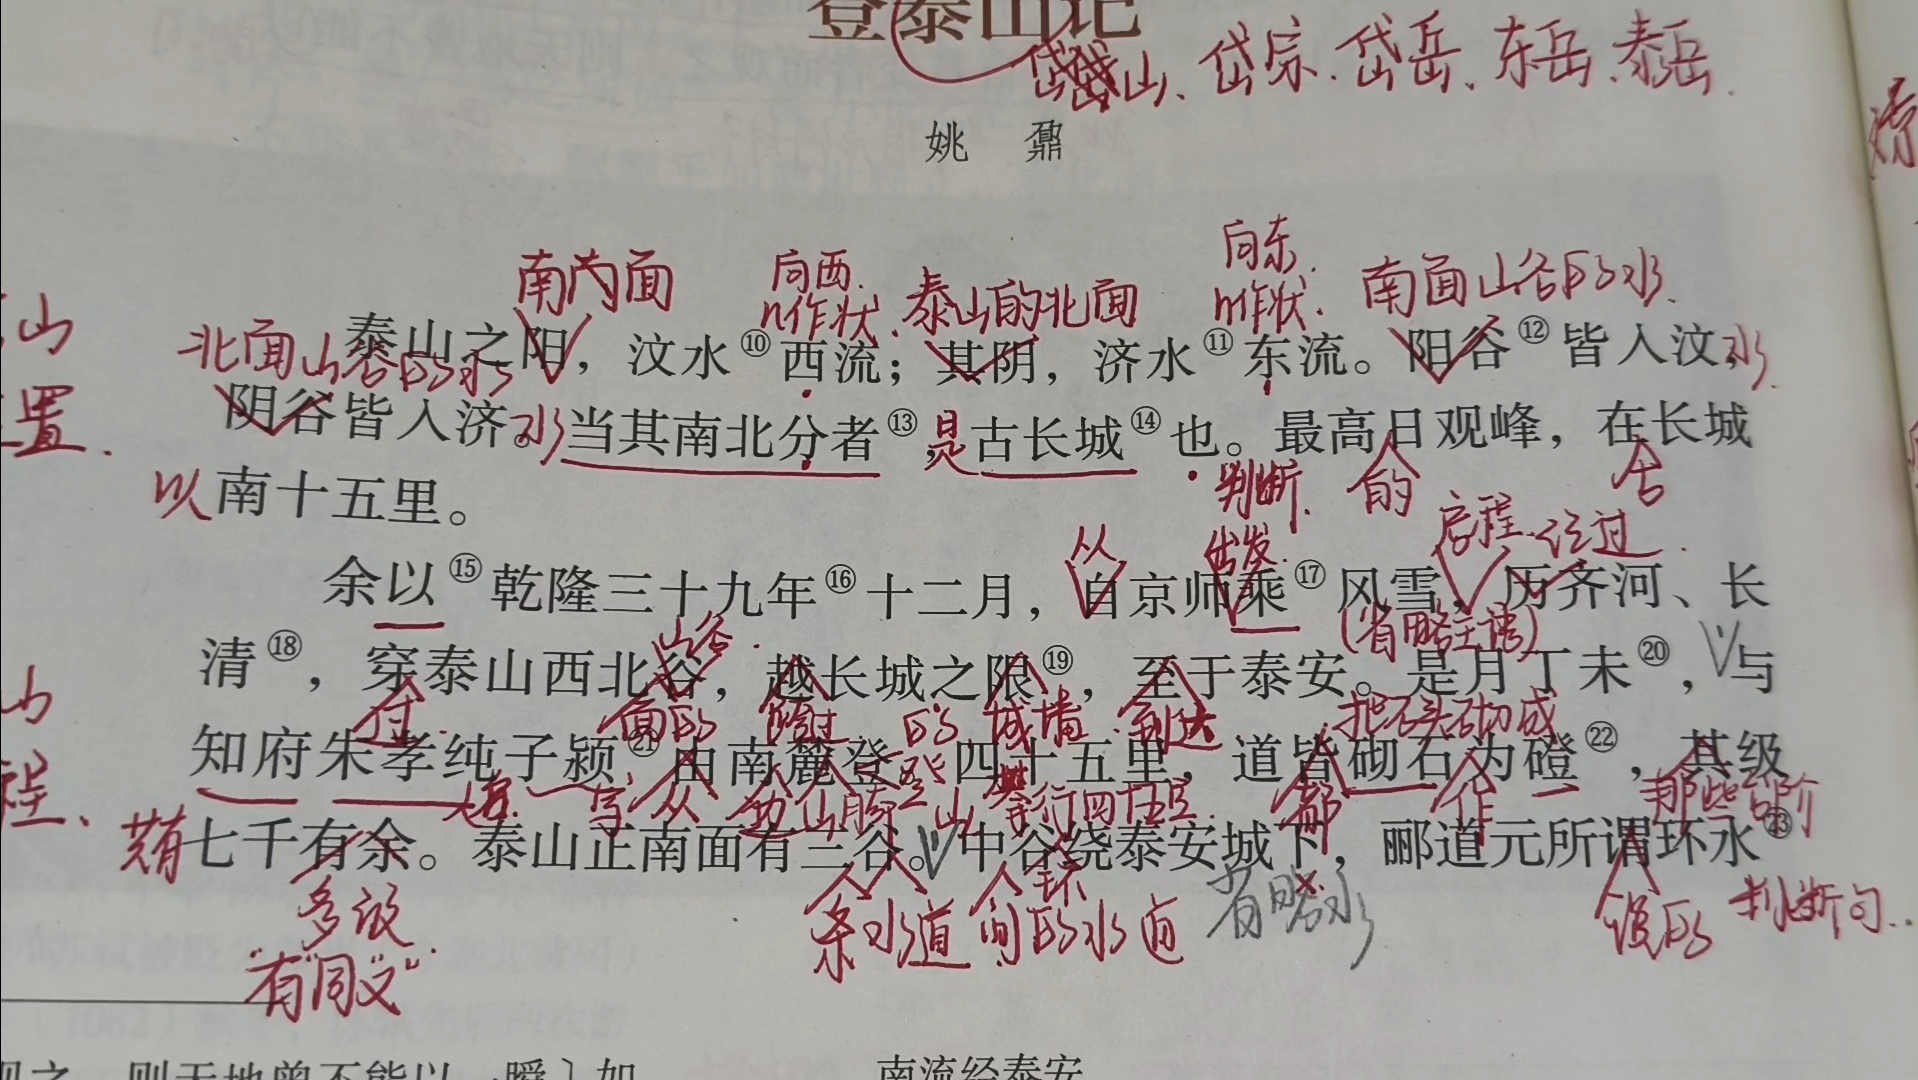 登泰山记
岱山、岱宗、岱岳、东岳、泰岳.
姚 鼐
向东.
南面 向西. n作状. 泰山的北面 n作状. 南面山谷的水.
山
北面山谷的水
泰山之阳，汶水⑩西流；其阴，济水⑪东流。阳谷⑫皆入汶，水.
置.
阴谷皆入济。水 当其南北分者⑬，是古长城⑭也。最高日观峰，在长城
判断. 的
以南十五里。
从 出发. 启程. 经过.
余以⑮乾隆三十九年⑯十二月，自京师乘⑰风雪，历齐河、长
山谷. (省略主语)
清⑱，穿泰山西北谷，越长城之限⑲，至于泰安。是月丁未⑳，与
山
过. 面的 的 城墙. 到达 把石头砌成
知府朱孝纯子颍㉑由南麓登。四十五里，道皆砌石为磴㉒，其级
程、
字 从 山脚 山 行四十五里. 都 作 那些台阶
共有七千有余。泰山正南面有三谷。中谷绕泰安城下，郦道元所谓环水㉓
多 环
条水道 间的水道 说的 判断句..
“有”同“又”.
则天地曾不能以一瞬〕如
南流经泰安